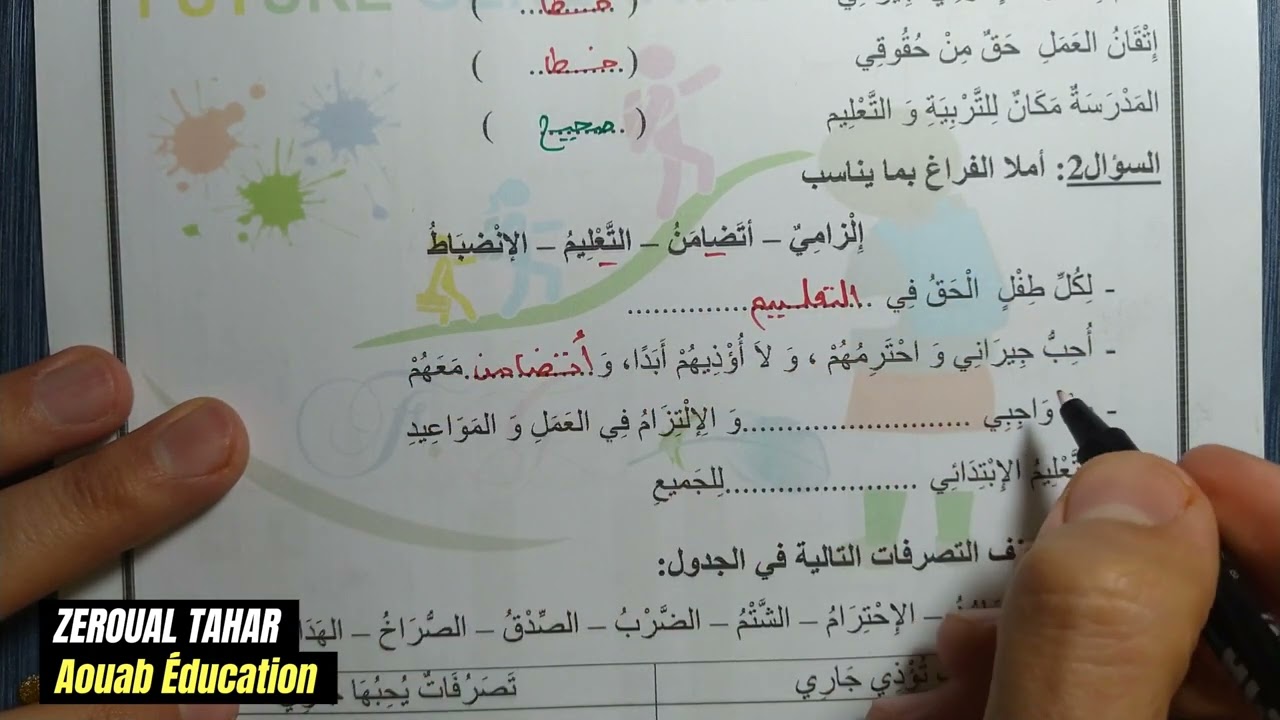 خطا
إِتْقَانُ العَمَلِ حَقٌ مِنْ حُقُوقِي (خطا)
المَدْرَسَةُ مَكَانٌ لِلتَّرْبِيَةِ وَ التَّعْلِيم (صحيح)
السؤال2: أملا الفراغ بما يناسب
إِلْزامِيٌ – أتَضَامَنُ – التَّعْلِيمُ – الإنْضبَاطُ
- لِكُلِّ طِفْلٍ الْحَقُ فِي .التعليم..............
- أُحِبُّ جِيرَانِي وَ احْتَرِمُهُمْ ، وَ لاَ أُؤْذِيهُمْ أَبَدًا، وَ أُتضامن.مَعَهُمْ
- وَاجِبِي .........................وَ الإِلْتِزَامُ فِي العَمَلِ وَ المَوَاعِيدِ
الإِبْتِدَائِي .....................لِلجَمِيعِ
التصرفات التالية في الجدول:
– الإِحْتِرَامُ – الشَّتْمُ – الضَّرْبُ – الصِّدْقُ – الصُّرَاخُ –
تُؤْذِي جَارِي
تَصَرُفَاتٌ يُحِبُهَا
ZEROUAL TAHAR
Aouab Éducation